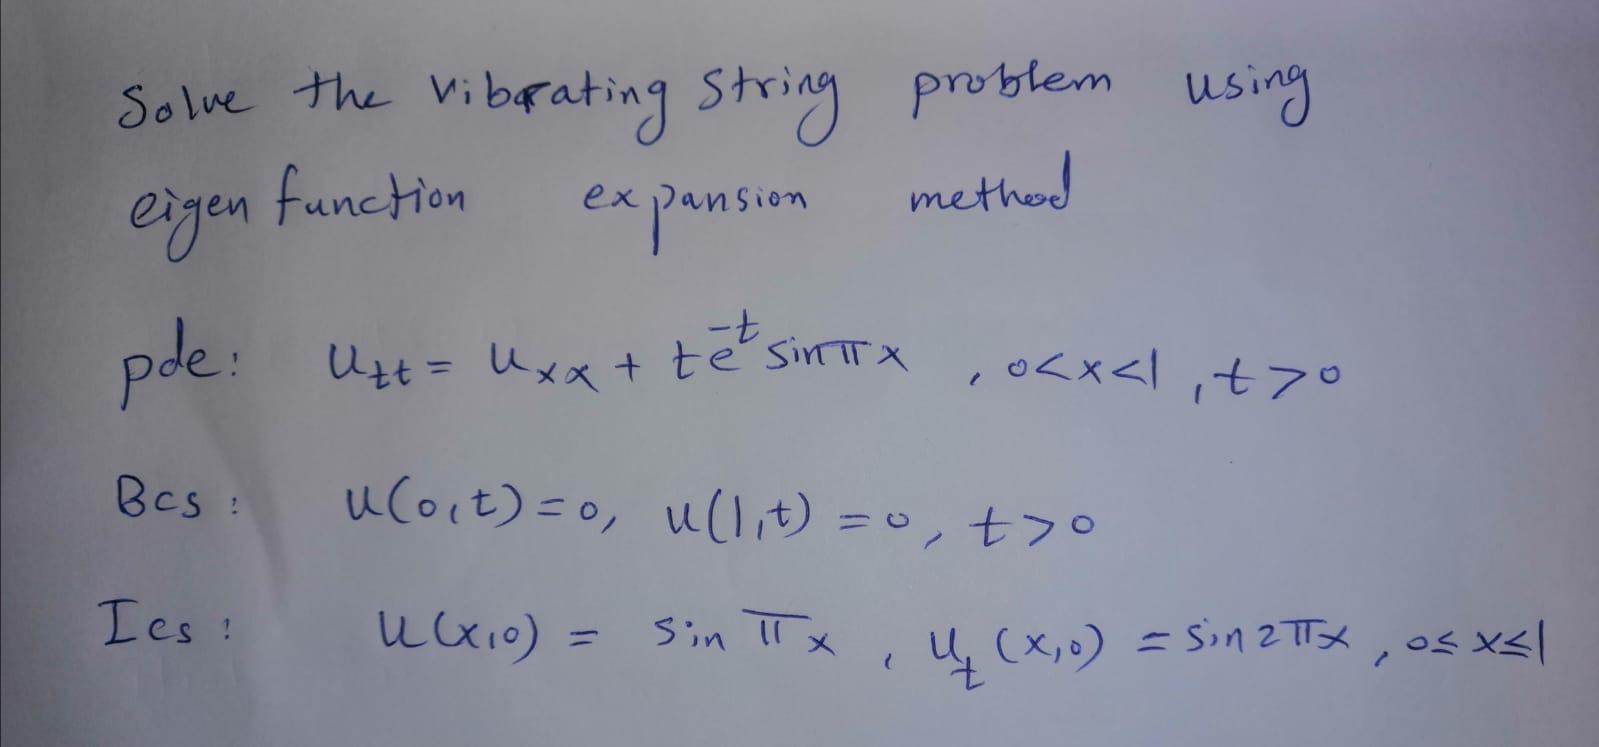 Solve the vibrating string problem using
eigen function expansion method
pde: u_tt = u_xx + te^-t sin πx , 0<x<1 , t>0
Bcs : u(0,t)=0, u(1,t) =0, t>0
Ics : u(x,0) = sin πx , u_t (x,0) = sin 2πx , 0≤ x≤1